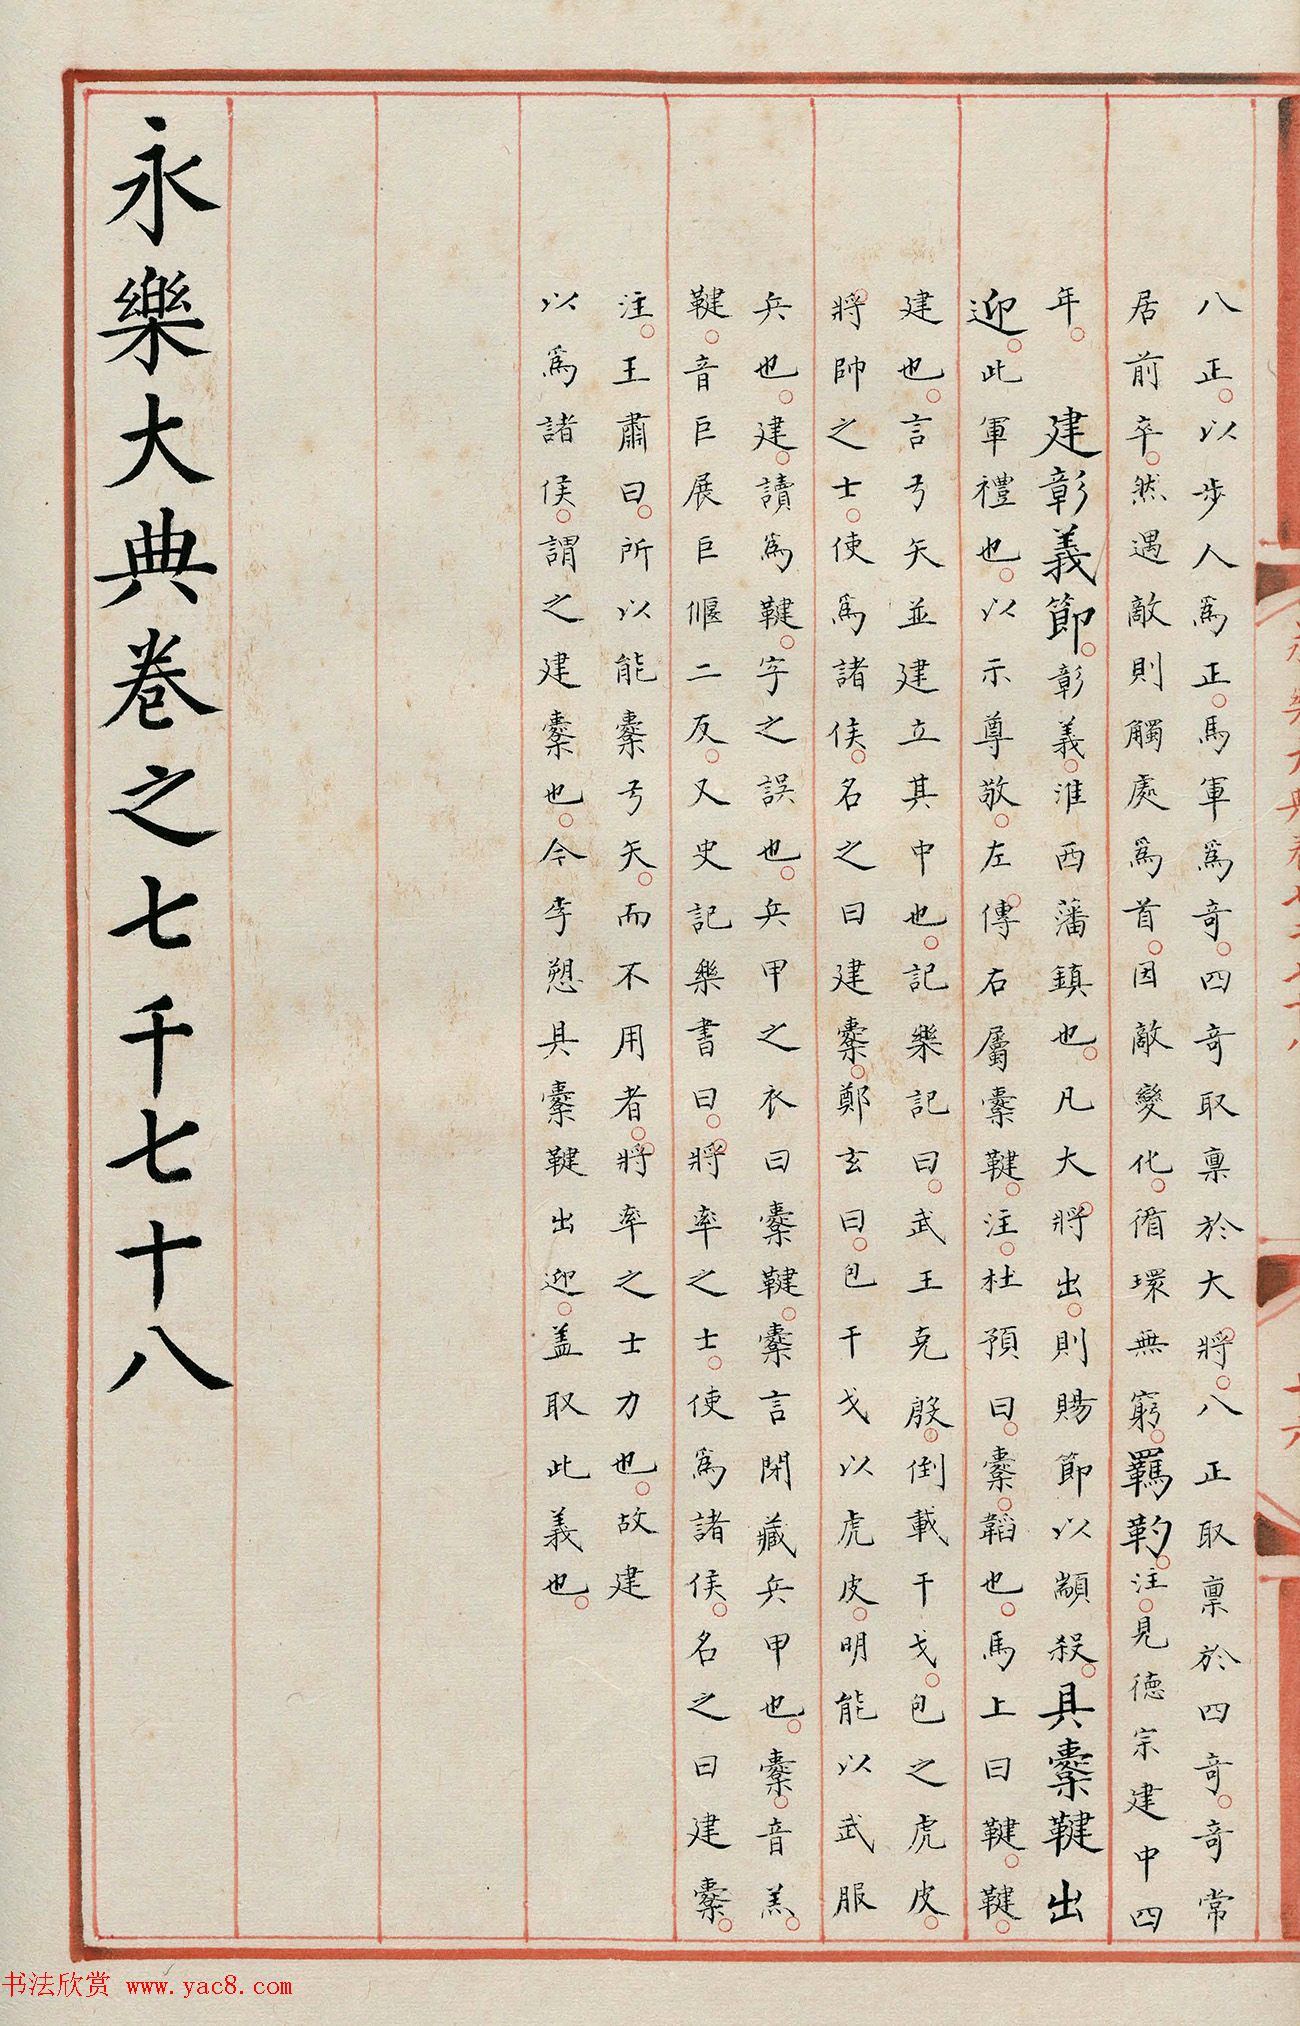 八正。以步人爲正。馬軍爲奇。四奇取稟於大將。八正取稟於四奇。奇常
居前卒。然遇敵則觸處爲首。因敵變化。循環無窮。羈靮。注。見德宗建中四
年。建彰義節。彰義。淮西藩鎮也。凡大將出。則賜節以顓殺。具櫜鞬出
迎。此軍禮也。以示尊敬。左傳右屬櫜鞬。注。杜預曰。櫜。韜也。馬上曰鞬。鞬。
建也。言弓矢並建立其中也。記樂記曰。武王克殷。倒載干戈。包之虎皮。
將帥之士。使爲諸侯。名之曰建櫜。鄭玄曰。包干戈以虎皮。明能以武服
兵也。建。讀爲鞬。字之誤也。兵甲之衣曰櫜鞬。櫜言閉藏兵甲也。櫜。音羔。
鞬。音巨展巨偃二反。又史記樂書曰。將率之士。使爲諸侯。名之曰建櫜。
注。王肅曰。所以能櫜弓矢。而不用者。將率之士力也。故建
以爲諸侯。謂之建櫜也。今李愬具櫜鞬出迎。盖取此義也。
永樂大典卷之七千七十八
书法欣赏 www.yac8.com